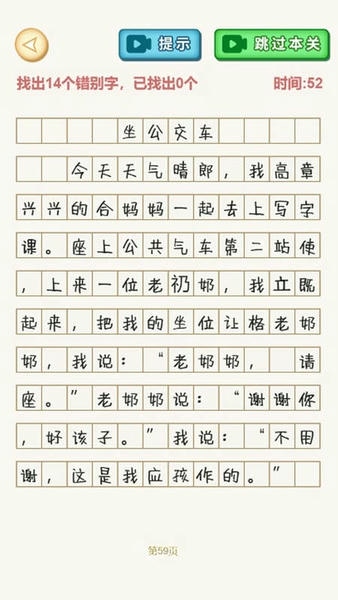 提示 跳过本关
找出14个错别字，已找出0个 时间:52
坐公交车
今天天气晴郎，我高章
兴兴的合妈妈一起去上写字
课。座上公共气车第二站使
，上来一位老礽奶，我立既
起来，把我的坐位让格老奶
奶，我说：“老奶奶，请
座。”老奶奶说：“谢谢你
，好该子。”我说：“不用
谢，这是我应孩作的。”
第59页